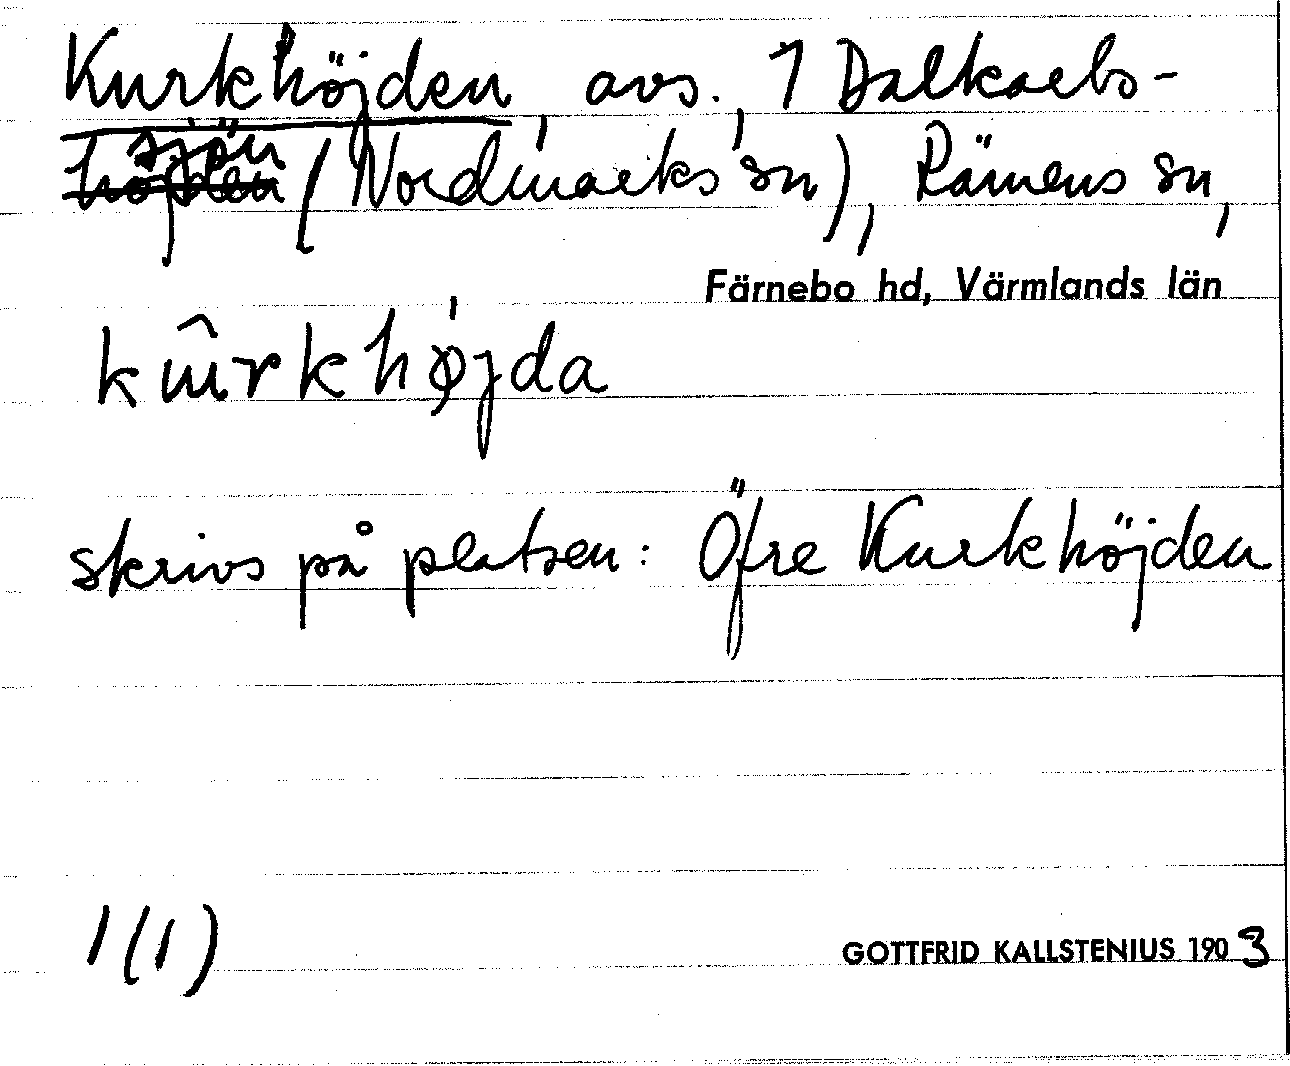 Kurkhöjden, avs., 1 Dalkarls-
sjön (Nordmarks sn), Rämens sn,
Färnebo hd, Värmlands län
kûrkhøjda
skrivs på platsen: Öfre Kurkhöjden
1(1)
GOTTFRID KALLSTENIUS 1903